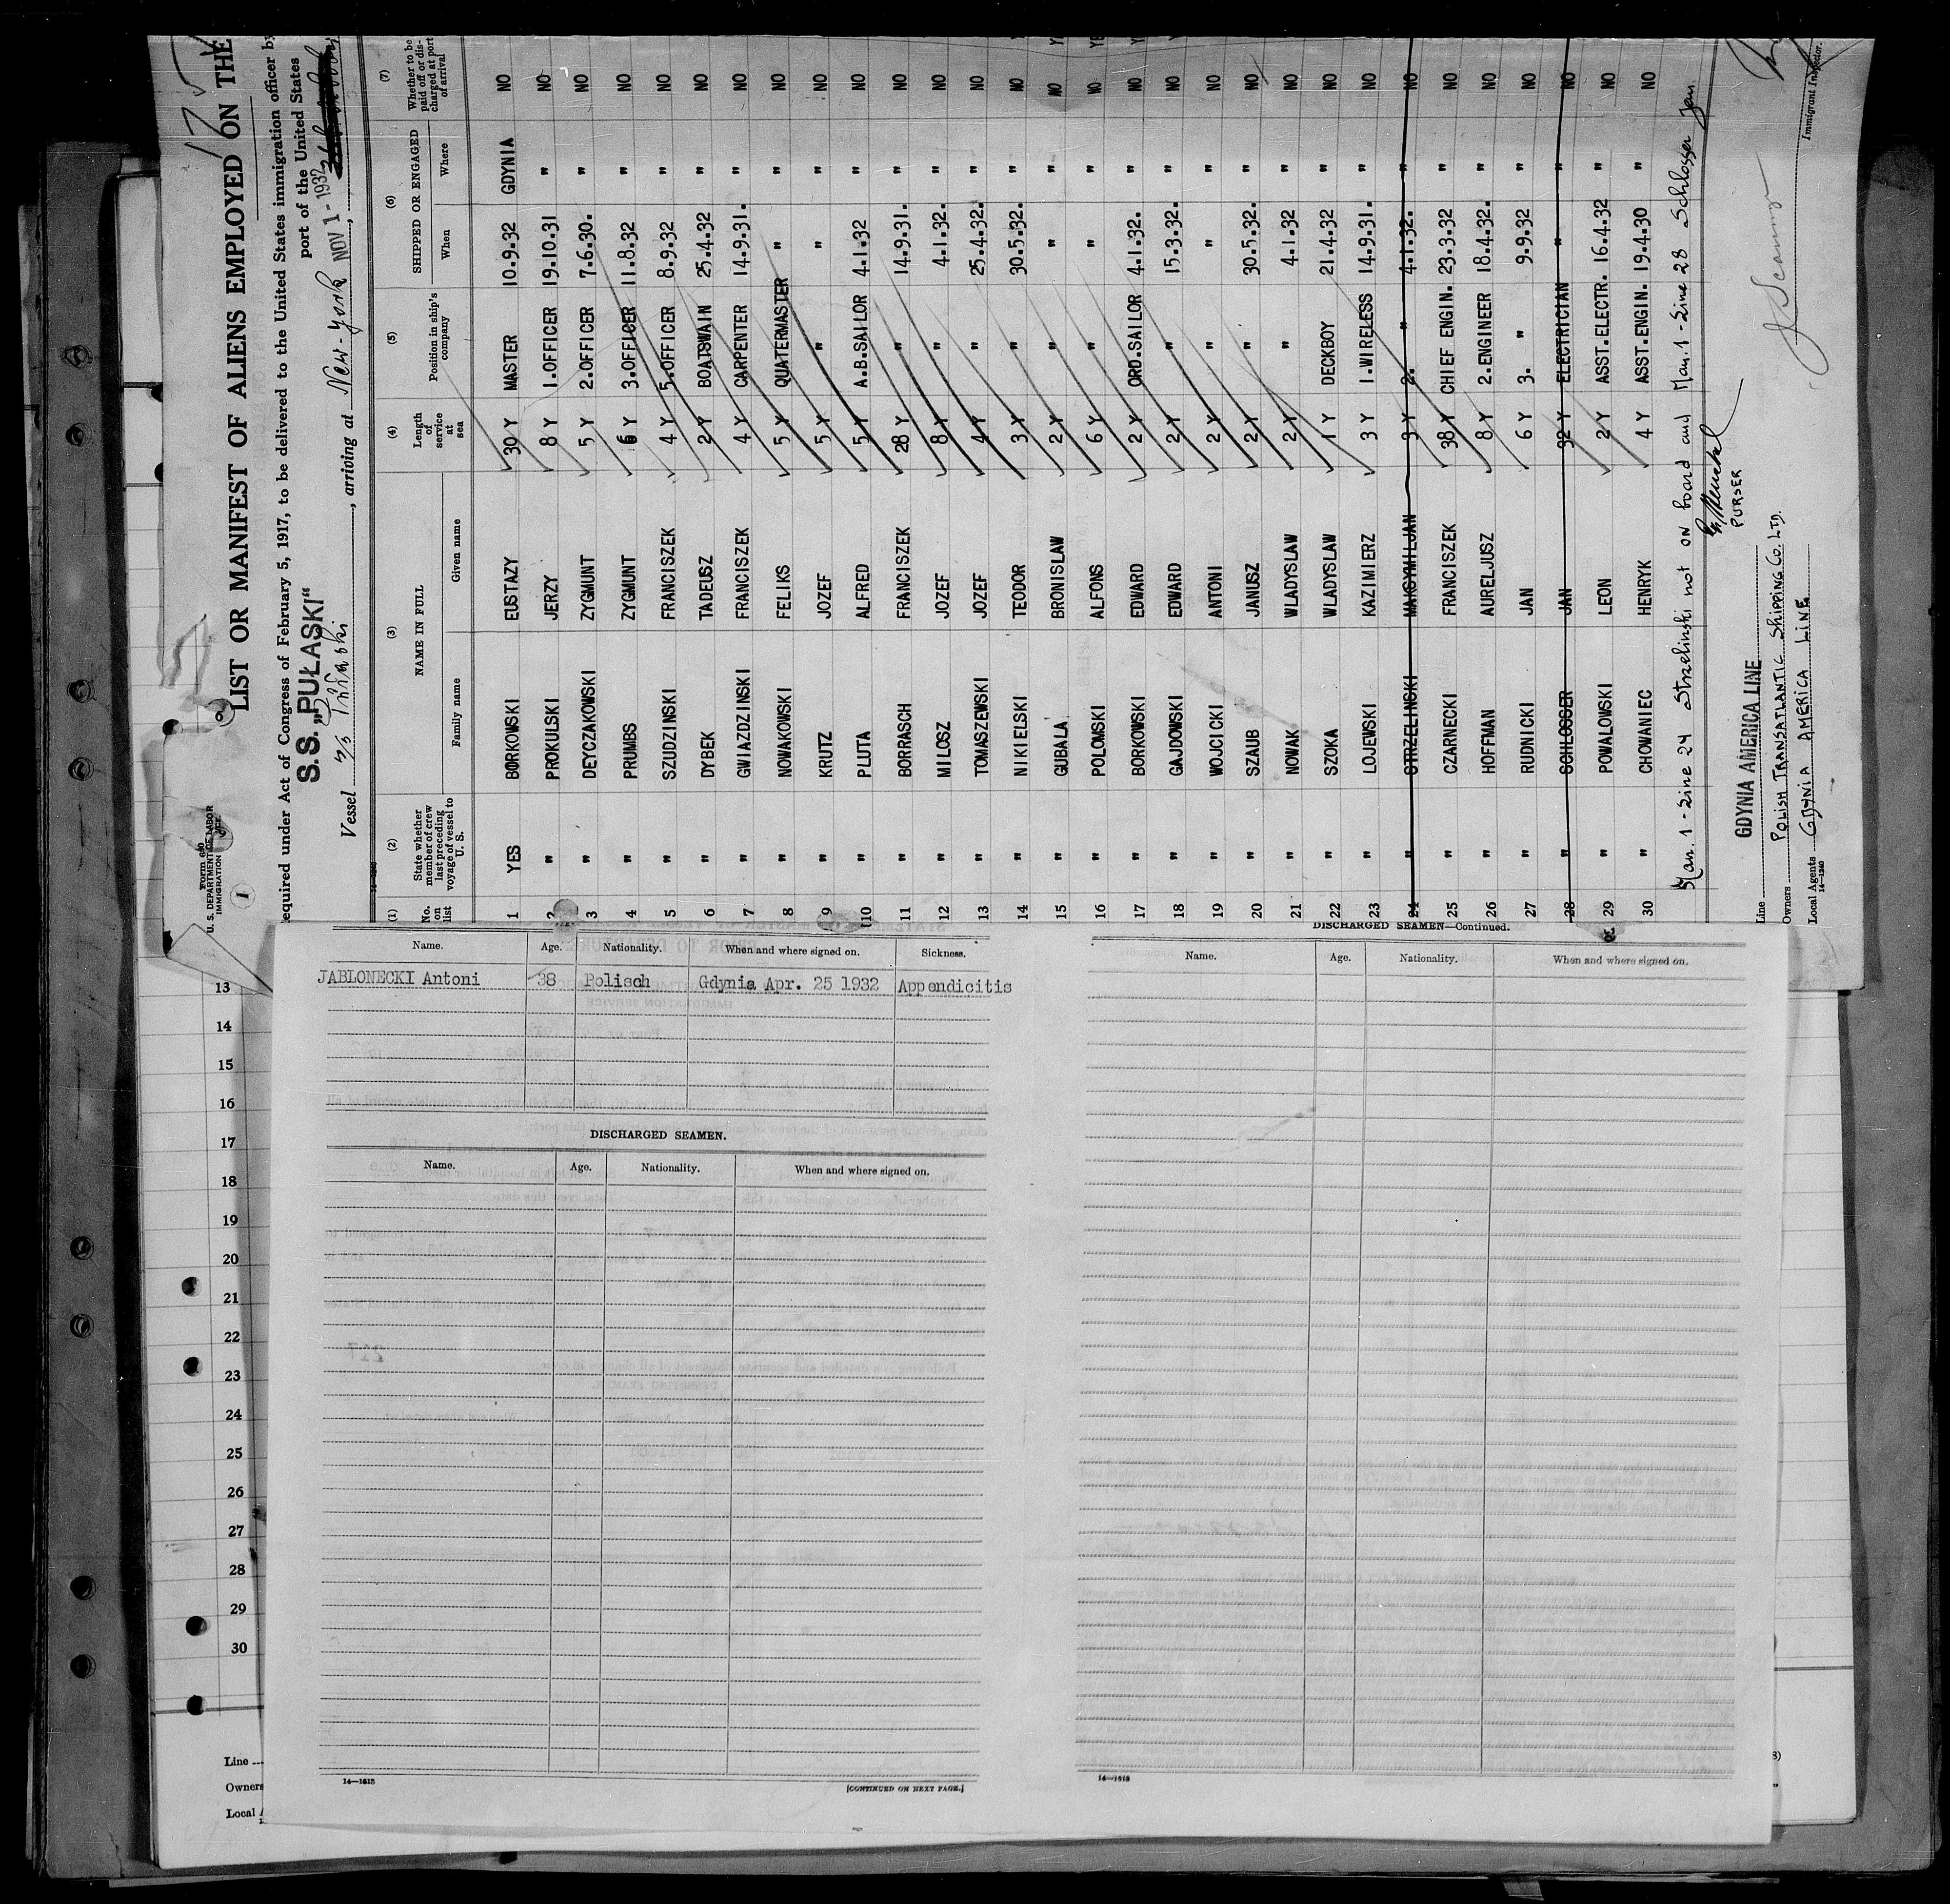 LIST OR MANIFEST OF ALIENS EMPLOYED ON THE
equired under Act of Congress of February 5, 1917, to be delivered to the United States immigration officer by
port of the United States
Form 680
U. S. DEPARTMENT OF LABOR
IMMIGRATION
1
S.S. „PUŁASKI“
Vessel S/S Pułaski, arriving at New-York NOV 1 - 1932,
(1) (2) (3) (4) (5) (6) (7)
No. on list State whether member of crew last preceding voyage of vessel to U. S. NAME IN FULL Length of service at sea Position in ship's company SHIPPED OR ENGAGED Whether to be paid off or discharged at port of arrival
Family name Given name When Where
1 YES BORKOWSKI EUSTAZY 30 Y MASTER 10.9.32 GDYNIA NO
2 " PROKULSKI JERZY 8 Y 1.OFFICER 19.10.31 " NO
3 " DEYCZAKOWSKI ZYGMUNT 5 Y 2.OFFICER 7.6.30. " NO
4 " PRUMBS ZYGMUNT 6 Y 3.OFFICER 11.8.32 " NO
5 " SZUDZINSKI FRANCISZEK 4 Y 5.OFFICER 8.9.32 " NO
6 " DYBEK TADEUSZ 2 Y BOATSWAIN 25.4.32 " NO
7 " GWIAZDZINSKI FRANCISZEK 4 Y CARPENTER 14.9.31. " NO
8 " NOWAKOWSKI FELIKS 5 Y QUATERMASTER " " NO
9 " KRUTZ JOZEF 5 Y " " " NO
10 " PLUTA ALFRED 5 Y A.B.SAILOR 4.1.32 " NO
11 " BORRASCH FRANCISZEK 28 Y " 14.9.31. " NO
12 " MILOSZ JOZEF 8 Y " 4.1.32. " NO
13 " TOMASZEWSKI JOZEF 4 Y " 25.4.32. " NO
14 " NIKIELSKI TEODOR 3 Y " 30.5.32. " NO
15 " GUBALA BRONISLAW 2 Y " " " NO
16 " POLOMSKI ALFONS 6 Y " " " NO
17 " BORKOWSKI EDWARD 2 Y ORD.SAILOR 4.1.32. " NO
18 " GAJDOWSKI EDWARD 2 Y " 15.3.32. " NO
19 " WOJCICKI ANTONI 2 Y " " " NO
20 " SZAUB JANUSZ 2 Y " 30.5.32. " NO
21 " NOWAK WLADYSLAW 2 Y " 4.1.32 " NO
22 " SZOKA WLADYSLAW 1 Y DECKBOY 21.4.32 " NO
23 " LOJEWSKI KAZIMIERZ 3 Y 1.WIRELESS 14.9.31. " NO
24 " STRZELINSKI MAKSYMILJAN 3 Y 2. " 4.1.32. " NO
25 " CZARNECKI FRANCISZEK 38 Y CHIEF ENGIN. 23.3.32 " NO
26 " HOFFMAN AURELJUSZ 8 Y 2.ENGINEER 18.4.32. " NO
27 " RUDNICKI JAN 6 Y 3. " 9.9.32 " NO
28 " SCHLOSSER JAN 32 Y ELECTRICIAN " " NO
29 " POWALOWSKI LEON 2 Y ASST.ELECTR. 16.4.32 " NO
30 " CHOWANIEC HENRYK 4 Y ASST.ENGIN. 19.4.30 " NO
Man. 1 - Line 24 Strzelinski not on board and Man. 1 - Line 28 Schlosser Jan
PURSER
GDYNIA AMERICA LINE
Line
Owners POLISH TRANSATLANTIC SHIPPING Co. LTD.
Local Agents GDYNIA AMERICA LINE
14—1240
Immigrant Inspector.
Name. Age. Nationality. When and where signed on. Sickness.
JABLONECKI Antoni 38 Polisch Gdynia Apr. 25 1932 Appendicitis
DISCHARGED SEAMEN.
Name. Age. Nationality. When and where signed on.
14—1613
[CONTINUED ON NEXT PAGE.]
DISCHARGED SEAMEN—Continued.
Name. Age. Nationality. When and where signed on.
14—1613
13
14
15
16
17
18
19
20
21
22
23
24
25
26
27
28
29
30
Line
Owners
Local